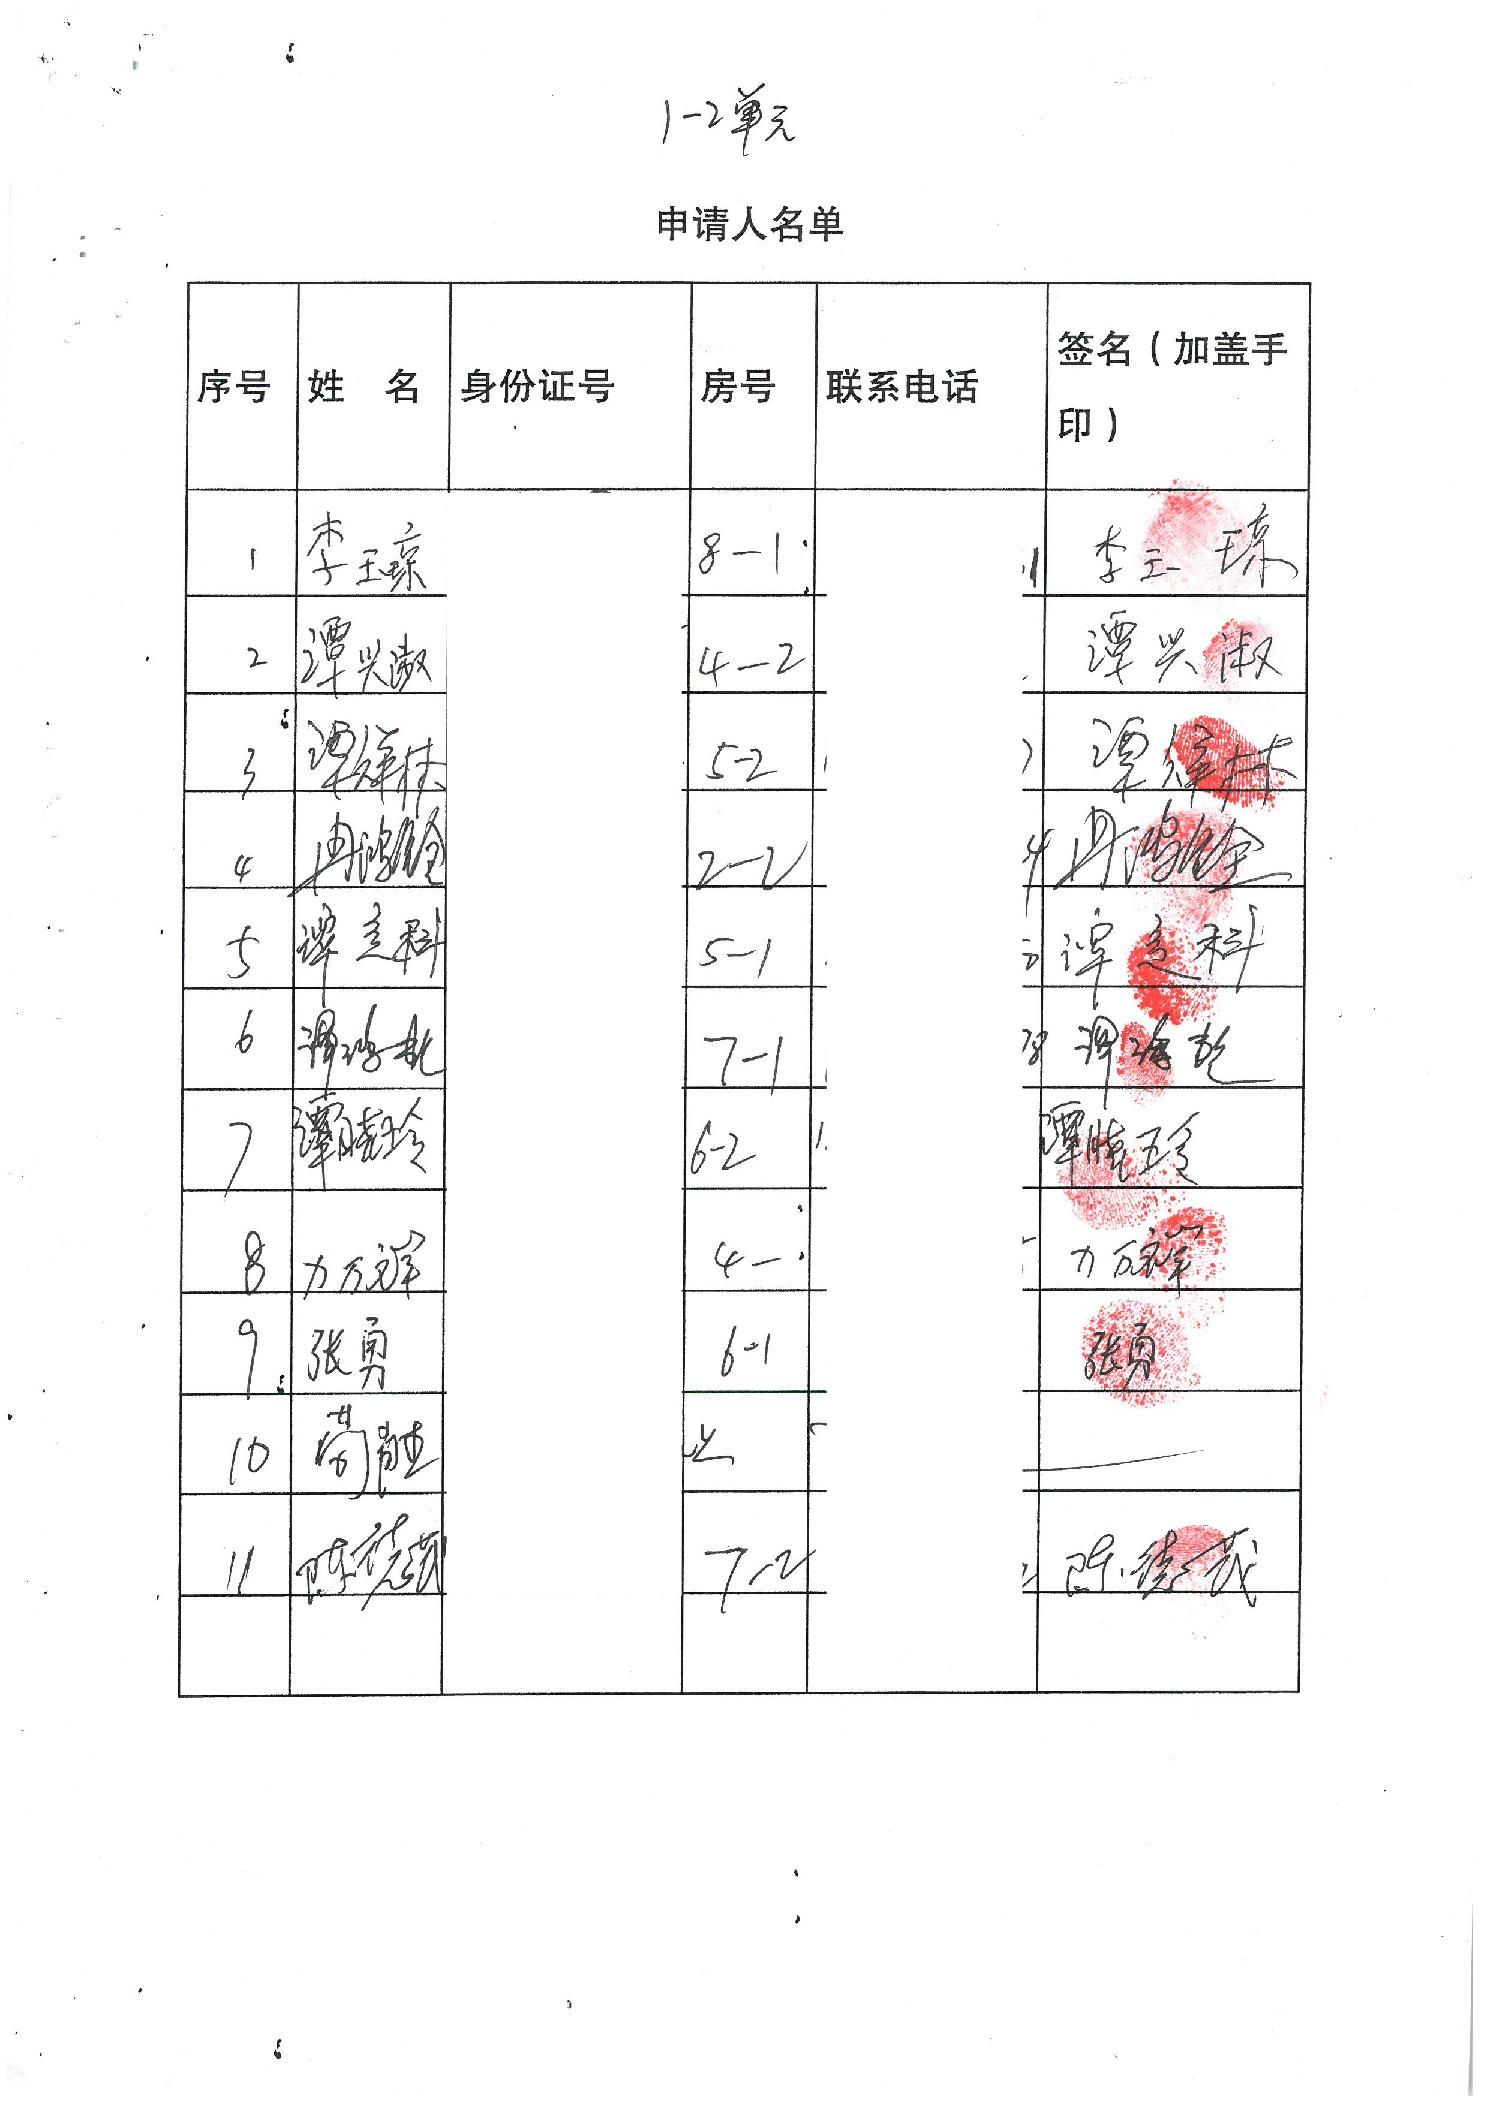 1-2单元
申请人名单
序号 姓 名 身份证号 房号 联系电话 签名（加盖手印）
1 李玉琼 8-1 李玉琼
2 谭兴淑 4-2 谭兴淑
3 谭祥林 5-2 谭祥林
4 冉鸿铨 2-2 冉鸿铨
5 谭立科 5-1 谭立科
6 谭鸿 7-1 谭鸿
7 谭晓玲 6-2 谭晓玲
8 力万祥 4- 力万祥
9 张勇 6-1 张勇
10
11 陈德茂 7-2 陈德茂